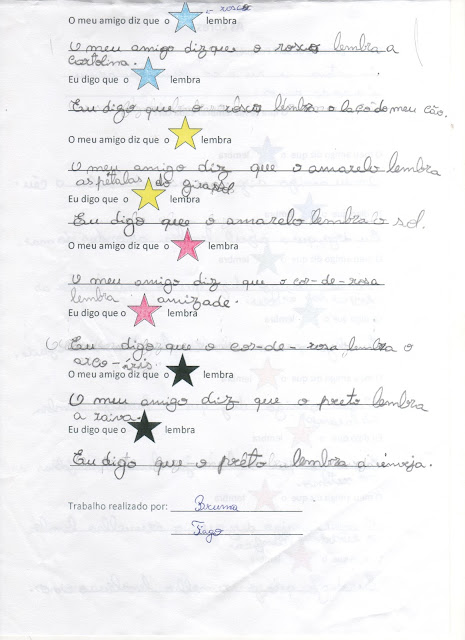 roxo
O meu amigo diz que o lembra
O meu amigo diz que o roxo lembra a
cartolina.
Eu digo que o lembra
Eu digo que o roxo lembra o laço do meu cão.
O meu amigo diz que o lembra
O meu amigo diz que o amarelo lembra
as pétalas do girassol.
Eu digo que o lembra
Eu digo que o amarelo lembra o sol.
O meu amigo diz que o lembra
O meu amigo diz que o cor-de-rosa
lembra amizade.
Eu digo que o lembra
Eu digo que o cor-de-rosa lembra o
arco-íris.
O meu amigo diz que o lembra
O meu amigo diz que o preto lembra
a raiva.
Eu digo que o lembra
Eu digo que o prêto lembra a inveja.
Trabalho realizado por: Bruma
Tiago